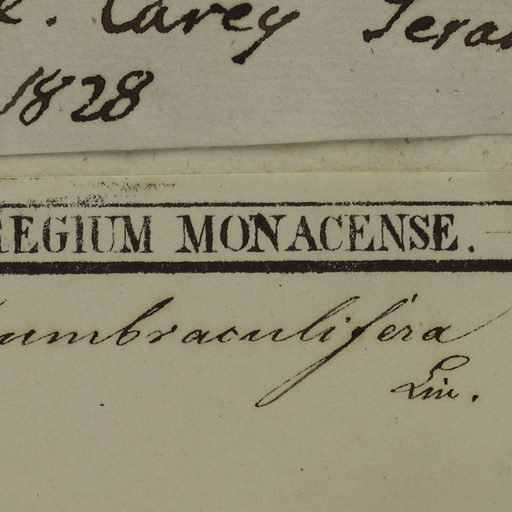 Carey
1828
REGIUM MONACENSE.
umbraculifera
Lin.